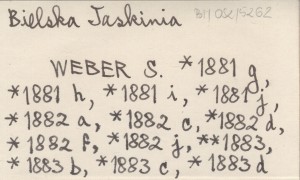 Bielska Jaskinia BII/OS2/5262
WEBER S. *1881 g,
*1881 h, *1881 i, *1881 j,
*1882 a, *1882 c, *1882 d,
*1882 f, *1882 j, **1883,
*1883 b, *1883 c, *1883 d